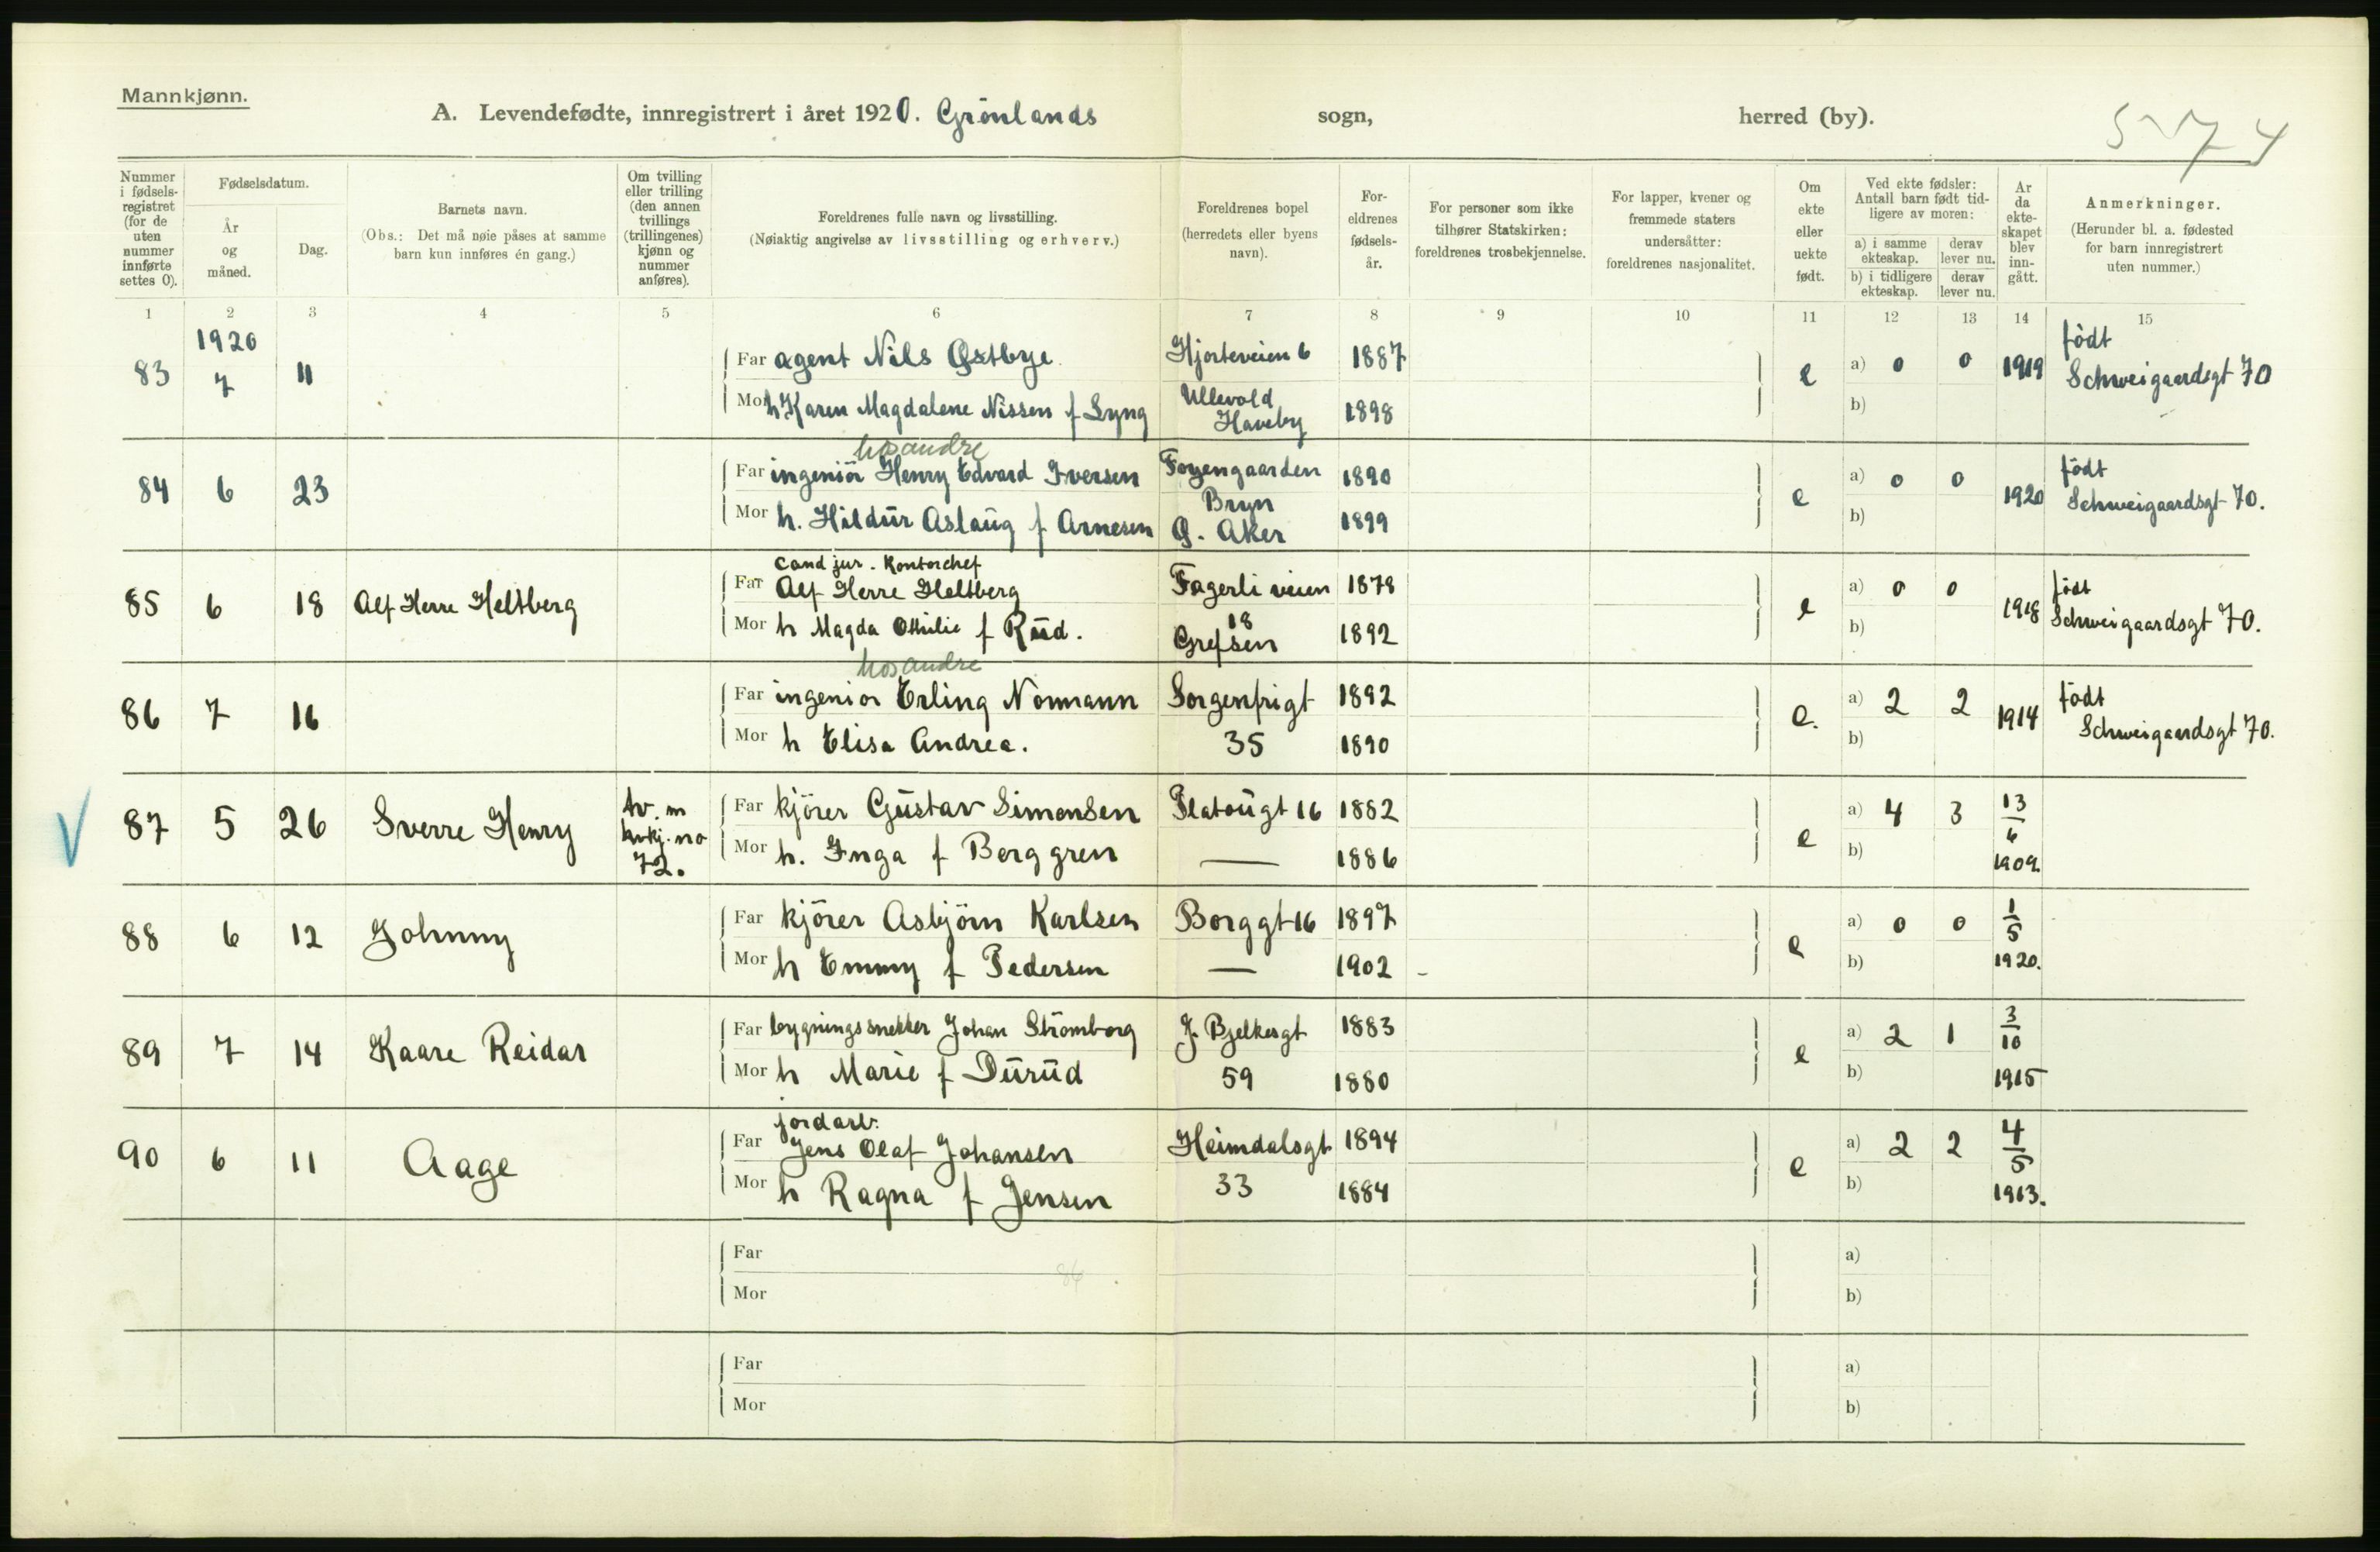 Mannkjønn.
A. Levendefødte, innregistrert i året 1920. Grönlands sogn, herred (by).
Nummer i fødsels-registret (for de uten nummer innførte settes 0).
Fødselsdatum.
År og måned.
Dag.
Barnets navn.
(Obs.: Det må nøie påses at samme barn kun innføres én gang.)
Om tvilling eller trilling (den annen tvillings (trillingenes) kjønn og nummer anføres).
Foreldrenes fulle navn og livsstilling.
(Nøiaktig angivelse av livsstilling og erhverv.)
Foreldrenes bopel (herredets eller byens navn).
For-eldrenes fødsels-år.
For personer som ikke tilhører Statskirken: foreldrenes trosbekjennelse.
For lapper, kvener og fremmede staters undersåtter: foreldrenes nasjonalitet.
Om ekte eller uekte født.
Ved ekte fødsler: Antall barn født tid-ligere av moren:
a) i samme ekteskap. derav lever nu.
b) i tidligere ekteskap. derav lever nu.
Ar da ekte-skapet blev inn-gått.
Anmerkninger.
(Herunder bl. a. fødested for barn innregistrert uten nummer.)
1 2 3 4 5 6 7 8 9 10 11 12 13 14 15
1920
83 7 11 Far agent Nils Østbye Hjorteveien 6 1887 e a) 0 0 1919 födt Schweigaardsgt 70
Mor h Karen Magdalene Nissen f Lyng Ullevold Haveby 1898 b)
hos andre
84 6 23 Far ingeniör Henry Edvard Iversen Foyengaarden Bryn 1890 e a) 0 0 1920 födt Schweigaardsgt 70.
Mor h. Hildur Aslaug f Arnesen Ø. Aker 1899 b)
cand jur. Kontorchef
85 6 18 Alf Herre Heltberg Far Alf Herre Heltberg Fagerliveien 18 1878 e a) 0 0 1918 födt Schweigaardsgt 70.
Mor h Magda Othilie f Rud. Grefsen 1892 b)
hos andre
86 7 16 Far ingeniör Erling Normann Sorgenfrigt 1892 e. a) 2 2 1914 födt Schweigaardsgt 70.
Mor h Elisa Andrea. 35 1890 b)
87 5 26 Sverre Henry tv. m kvkj. no 72. Far kjörer Gustav Simensen Platougt 16 1882 e a) 4 3 13/6 1909.
Mor h. Inga f Berggren — 1886 b)
88 6 12 Johnny Far kjörer Asbjörn Karlsen Borggt 16 1897 e a) 0 0 1/5 1920.
Mor h Emmy f Pedersen — 1902 b)
89 7 14 Kaare Reidar Far bygningssnekker Johan Strömborg J. Bjelkesgt 1883 e a) 2 1 3/10 1915
Mor h Marie f Durud 59 1880 b)
jordarb.
90 6 11 Aage Far Jens Olaf Johansen Heimdalsgt 1894 e a) 2 2 4/5 1913.
Mor h Ragna f Jensen 33 1884 b)
Far a)
86
Mor b)
Far a)
Mor b)